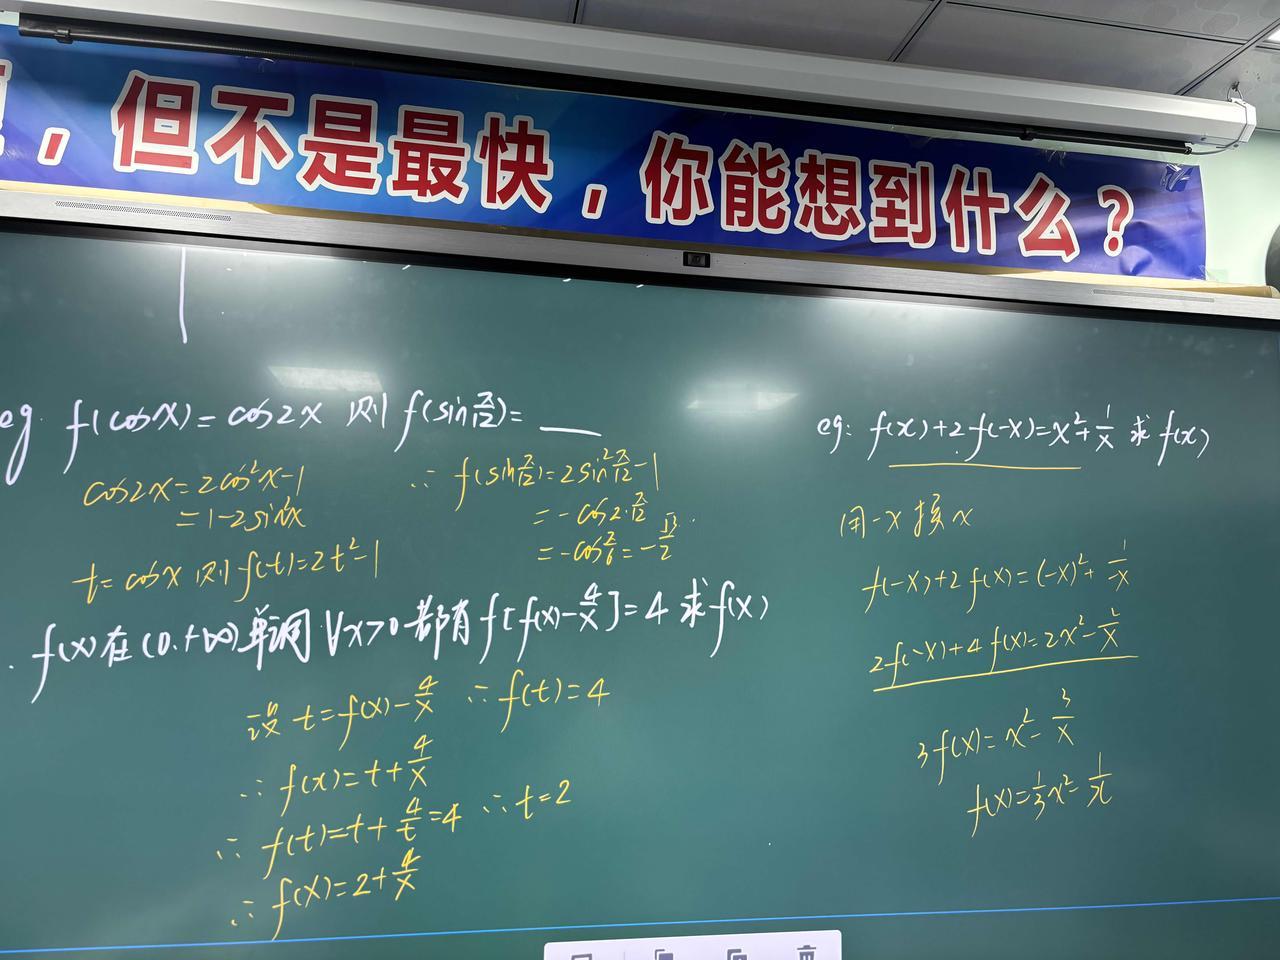 ，但不是最快，你能想到什么？
eg. f(cosx)=cos2x 则 f(sin π/12)= ___
cos2x=2cos²x-1
=1-2sin²x
t=cosx 则 f(t)=2t²-1
∴ f(sin π/12)=2sin² π/12 -1
=-cos2·π/12
=-cos π/6=-√3/2
. f(x)在(0.+∞)单调 ∀x>0都有f[f(x)-4/x]=4 求f(x)
设 t=f(x)-4/x ∴ f(t)=4
∴ f(x)=t+4/x
∴ f(t)=t+4/t=4 ∴ t=2
∴ f(x)=2+4/x
eg: f(x)+2f(-x)=x²+1/x 求 f(x)
用-x换x
f(-x)+2f(x)=(-x)²+1/-x
2f(-x)+4f(x)=2x²-2/x
3f(x)=x²-3/x
f(x)=1/3x²-1/x